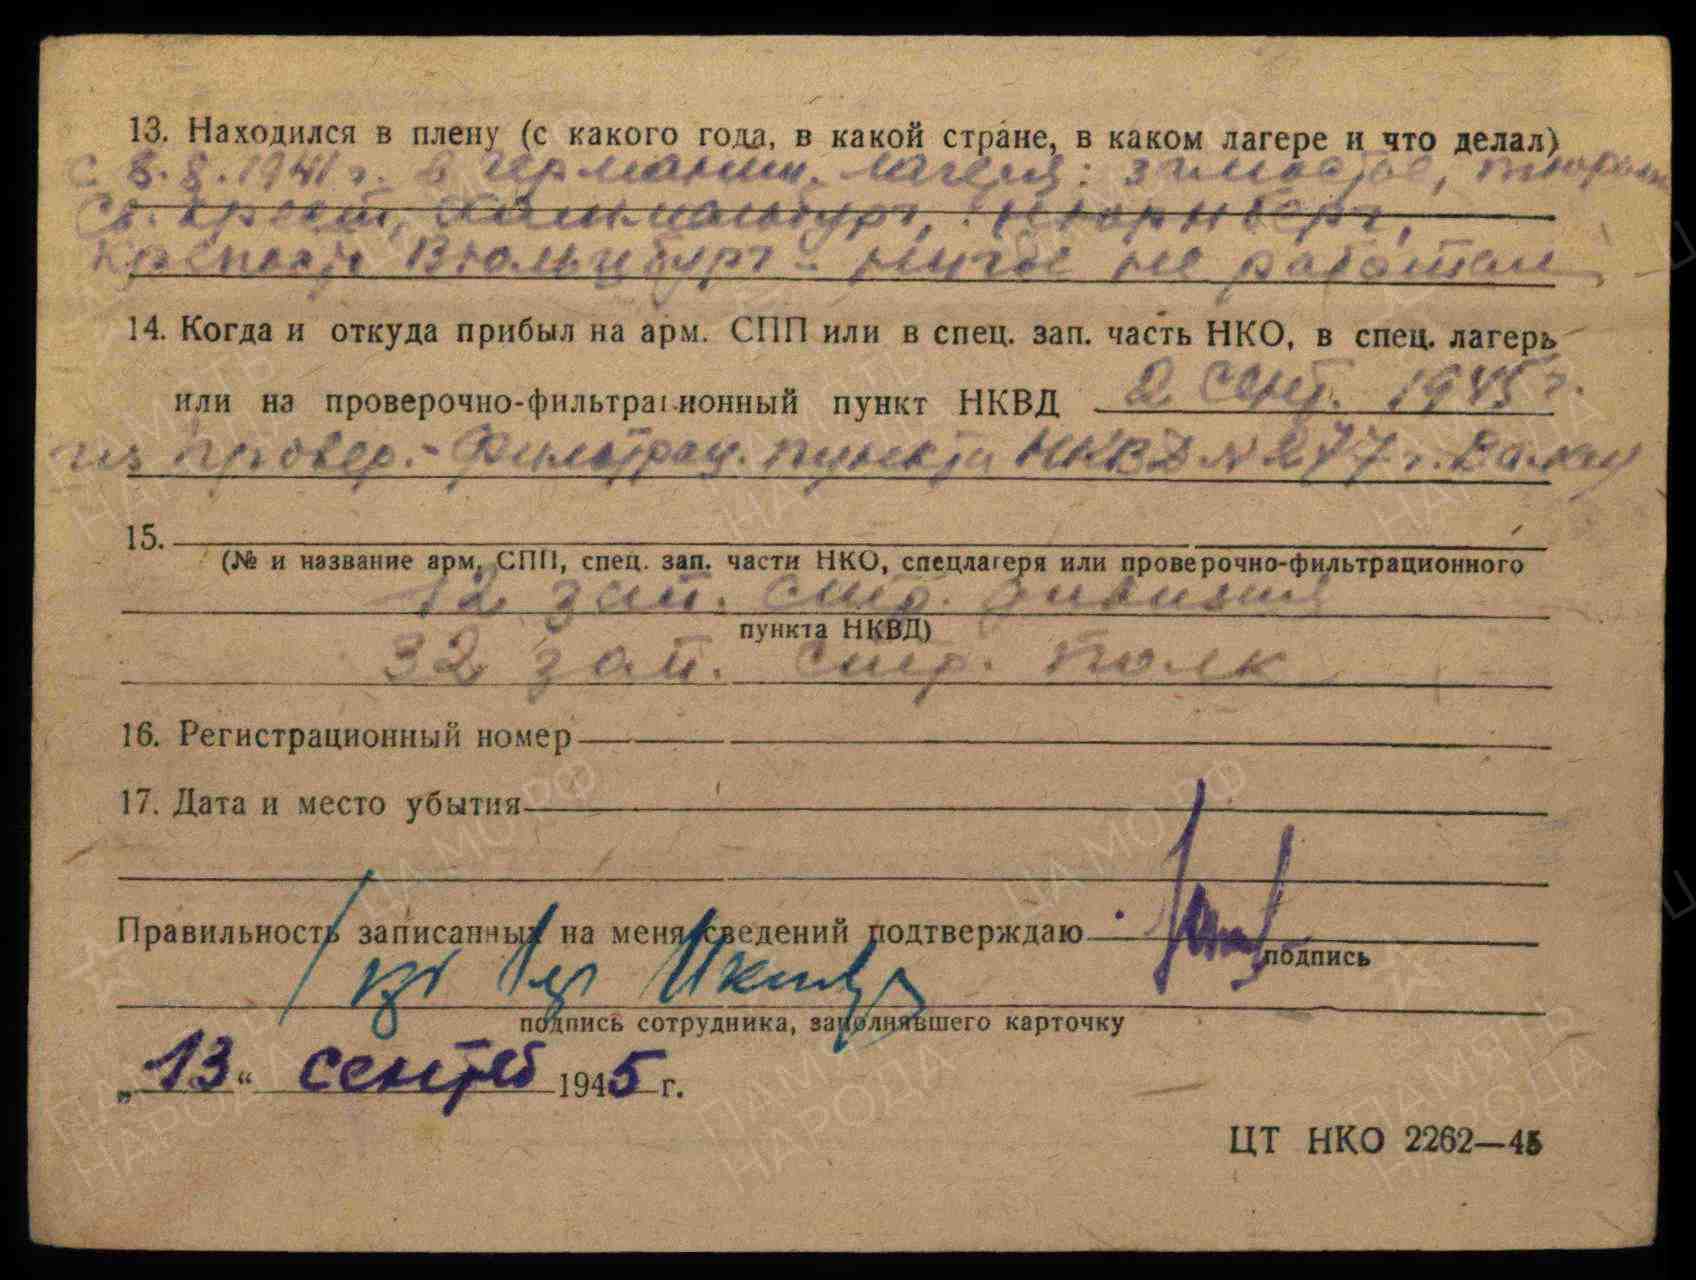 13. Находился в плену (с какого года, в какой стране, в каком лагере и что делал)
с 8.8.1941 г. в Германии. Лагеря: Замостье, тюрьма
Св. Крест, Хаммельбург, Нюрнберг,
крепость Вюльцбург - нигде не работал
14. Когда и откуда прибыл на арм. СПП или в спец. зап. часть НКО, в спец. лагерь
или на проверочно-фильтрационный пункт НКВД 2 сент. 1945 г.
из провер.-Фильтрац. пункта НКВД № 277 г.
15.
(№ и название арм. СПП, спец. зап. части НКО, спецлагеря или проверочно-фильтрационного
12 зап. стр. дивизия
пункта НКВД)
32 зап. стр. полк
16. Регистрационный номер
17. Дата и место убытия
Правильность записанных на меня сведений подтверждаю
подпись
подпись сотрудника, заполнявшего карточку
„13“ сентяб 1945 г.
ЦТ НКО 2262—45
ПАМЯТЬ
НАРОДА
ЦА МО РФ